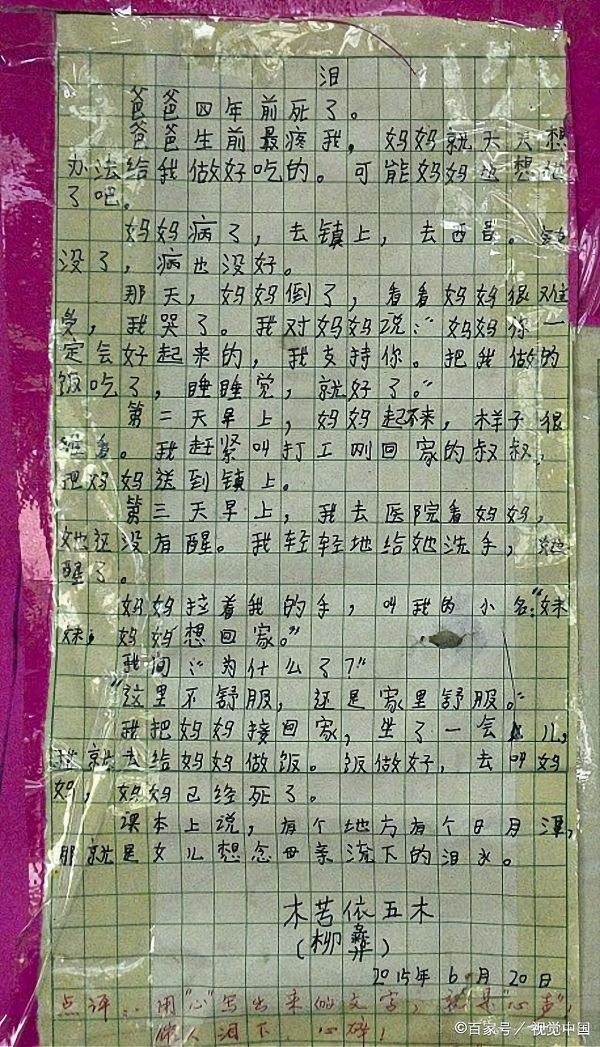 泪
爸爸四年前死了。
爸爸生前最疼我，妈妈就天天想
办法给我做好吃的。可能妈妈也想他
了吧。
妈妈病了，去镇上，去西昌。钱
没了，病也没好。
那天，妈妈倒了，看看妈妈很难
受，我哭了。我对妈妈说：“妈妈你一
定会好起来的，我支持你。把我做的
饭吃了，睡睡觉，就好了。”
第二天早上，妈妈起不来，样子很
难看。我赶紧叫打工刚回家的叔叔，
把妈妈送到镇上。
第三天早上，我去医院看妈妈，
她还没有醒。我轻轻地给她洗手，她
醒了。
妈妈拉着我的手，叫我的小名：“妹
妹，妈妈想回家。”
我问：“为什么了？”
“这里不舒服，还是家里舒服。”
我把妈妈接回家，坐了一会儿，
我就去给妈妈做饭。饭做好，去叫妈
妈，妈妈已经死了。
课本上说，有个地方有个日月潭，
那就是女儿想念母亲流下的泪水。
木苦依五木
（柳彝）
2015年6月20日
点评：用“心”写出来的文字，就是“心声”，
催人泪下 心碎！
©百家号／视觉中国